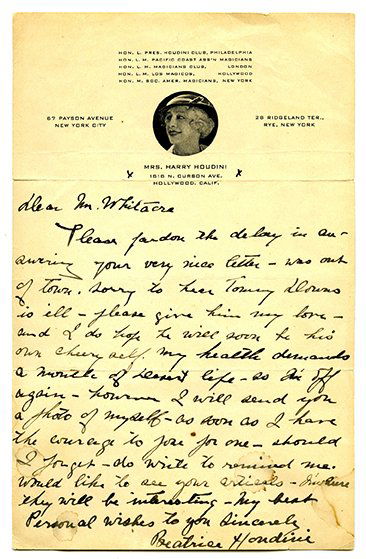 HON. L. PRES. HOUDINI CLUB, PHILADELPHIA
HON. L. M. PACIFIC COAST ASS'N MAGICIANS
HON. L. M. MAGICIANS CLUB, LONDON
HON. L. M. LOS MAGICOS, HOLLYWOOD
HON. M. SOC. AMER. MAGICIANS, NEW YORK
67 PAYSON AVENUE
NEW YORK CITY
28 RIDGELAND TER.,
RYE, NEW YORK
MRS. HARRY HOUDINI
x 1616 N. CURSON AVE. x
HOLLYWOOD, CALIF.
Dear Mr. Whitacre
Please pardon the delay in an-
swering your very nice letter - was out
of town. sorry to hear Tommy Downs
is ill - please give him my love -
and I do hope he will soon be his
own cheery self. My health demands
a month of desert life - so I'm off
again - however I will send you
a photo of myself - as soon as I have
the courage to pose for one - should
I forget - do write to remind me.
Would like to see your articals - I'm sure
they will be interesting - My best
Personal wishes to you Sincerely
Beatrice Houdini